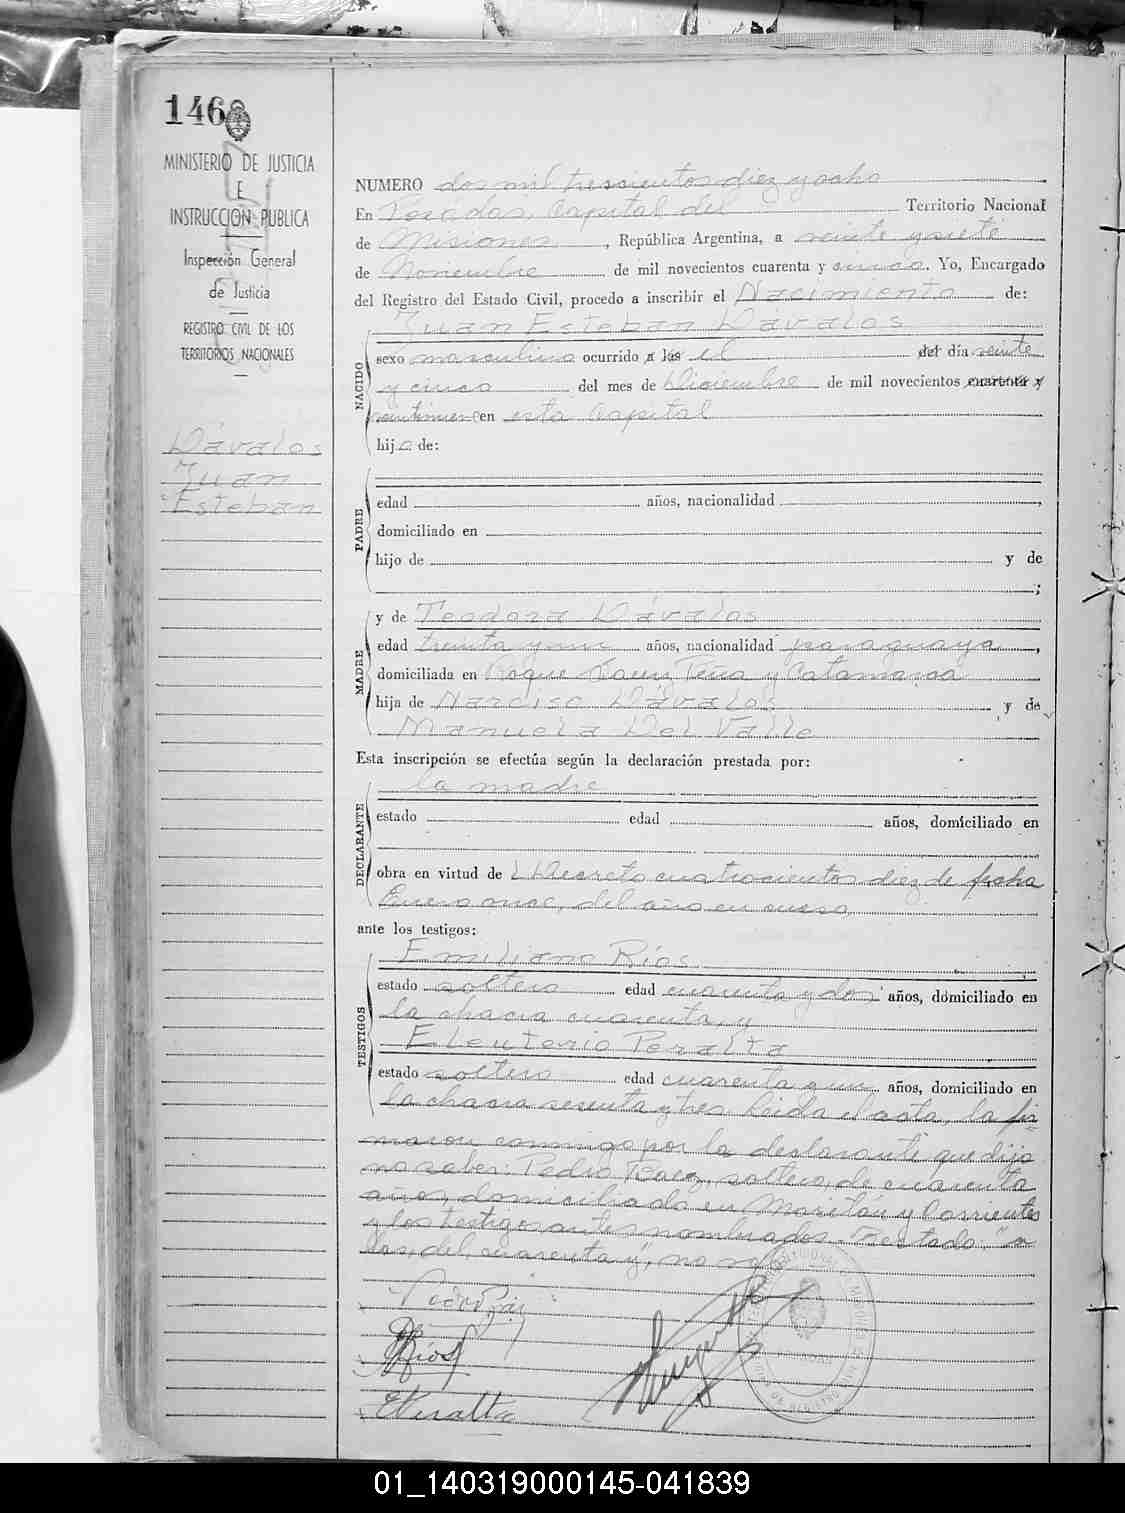 146
MINISTERIO DE JUSTICIA
E
INSTRUCCION PUBLICA
Inspección General
de Justicia
REGISTRO CIVIL DE LOS
TERRITORIOS NACIONALES
Dávalos
Juan
Esteban
NUMERO dos mil trescientos diez y ocho
En Posadas, Capital del Territorio Nacional
de Misiones, República Argentina, a veinte y siete
de Noviembre de mil novecientos cuarenta y cinco. Yo, Encargado
del Registro del Estado Civil, procedo a inscribir el Nacimiento de:
Juan Esteban Dávalos
NACIDO
sexo masculino ocurrido a las el del día veinte
y cinco del mes de Diciembre de mil novecientos cuarenta y
en esta Capital
hijo de:
PADRE
edad años, nacionalidad ,
domiciliado en
hijo de y de
;
MADRE
y de Teodora Dávalos
edad treinta y un años, nacionalidad paraguaya,
domiciliada en Roque Saenz Peña y Catamarca
hija de Narciso Dávalos y de
Manuela Del Valle
Esta inscripción se efectúa según la declaración prestada por:
la madre
DECLARANTE
estado edad años, domiciliado en
obra en virtud de Decreto cuatrocientos diez de fecha
Enero once, del año en curso
ante los testigos:
TESTIGOS
Emiliano Ríos
estado soltero edad cuarenta y dos años, domiciliado en
la chacra cuarenta, y
Eleuterio Peralta
estado soltero edad cuarenta y un años, domiciliado en
la chacra sesenta y tres. Leida el acta, la fir
maron conmigo por la declarante que dijo
no saber: Pedro Baez, soltero, de cuarenta
años, domiciliado en y Corrientes
y los testigos antes nombrados. Testado: "a
las, del, cuarenta y", no vale
Ríos
EPeralta
01_140319000145-041839